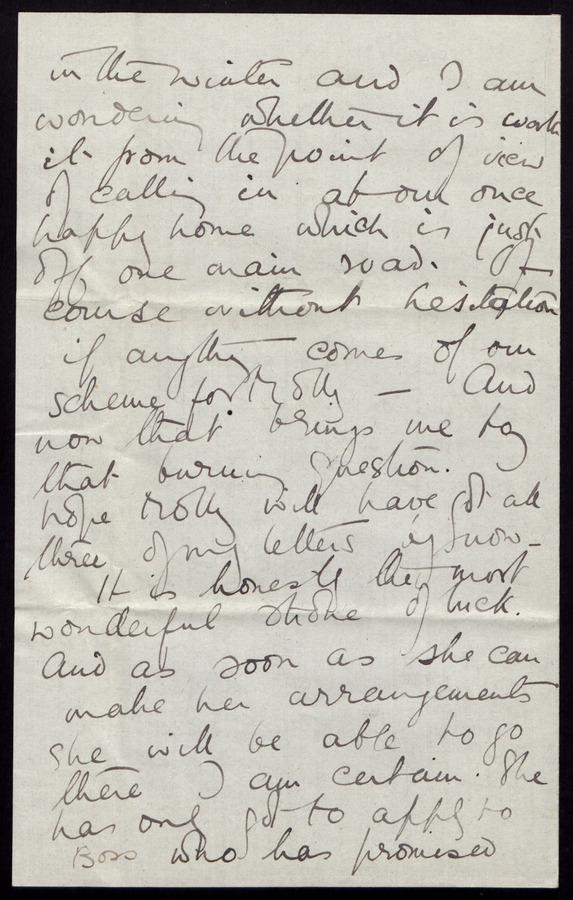 in the winter and I am
wondering whether it is worth
it from the point of view
of calling in at our once
happy home which is just
off one main road. Of
course without hesitation
if anything comes of our
scheme for Molly — And
now that brings me to
that burning question. I
hope Molly will have got all
three of my letters by now –
It is honestly the most
wonderful stroke of luck.
And as soon as she can
make her arrangements
she will be able to go
there I am certain. She
has only got to apply to
Boss who has promised